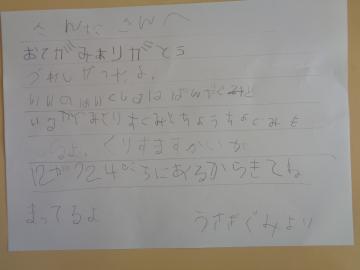 さんたさんへ
おてがみありがとう
うれしかったよ。
いいのほいくしょは ばんびぐみ
いるかぐみとりすぐみとちょうちょぐみも
あるよ。くりすますかいが
12がつ24にちにあるからきてね
まってるよ うさぎぐみより